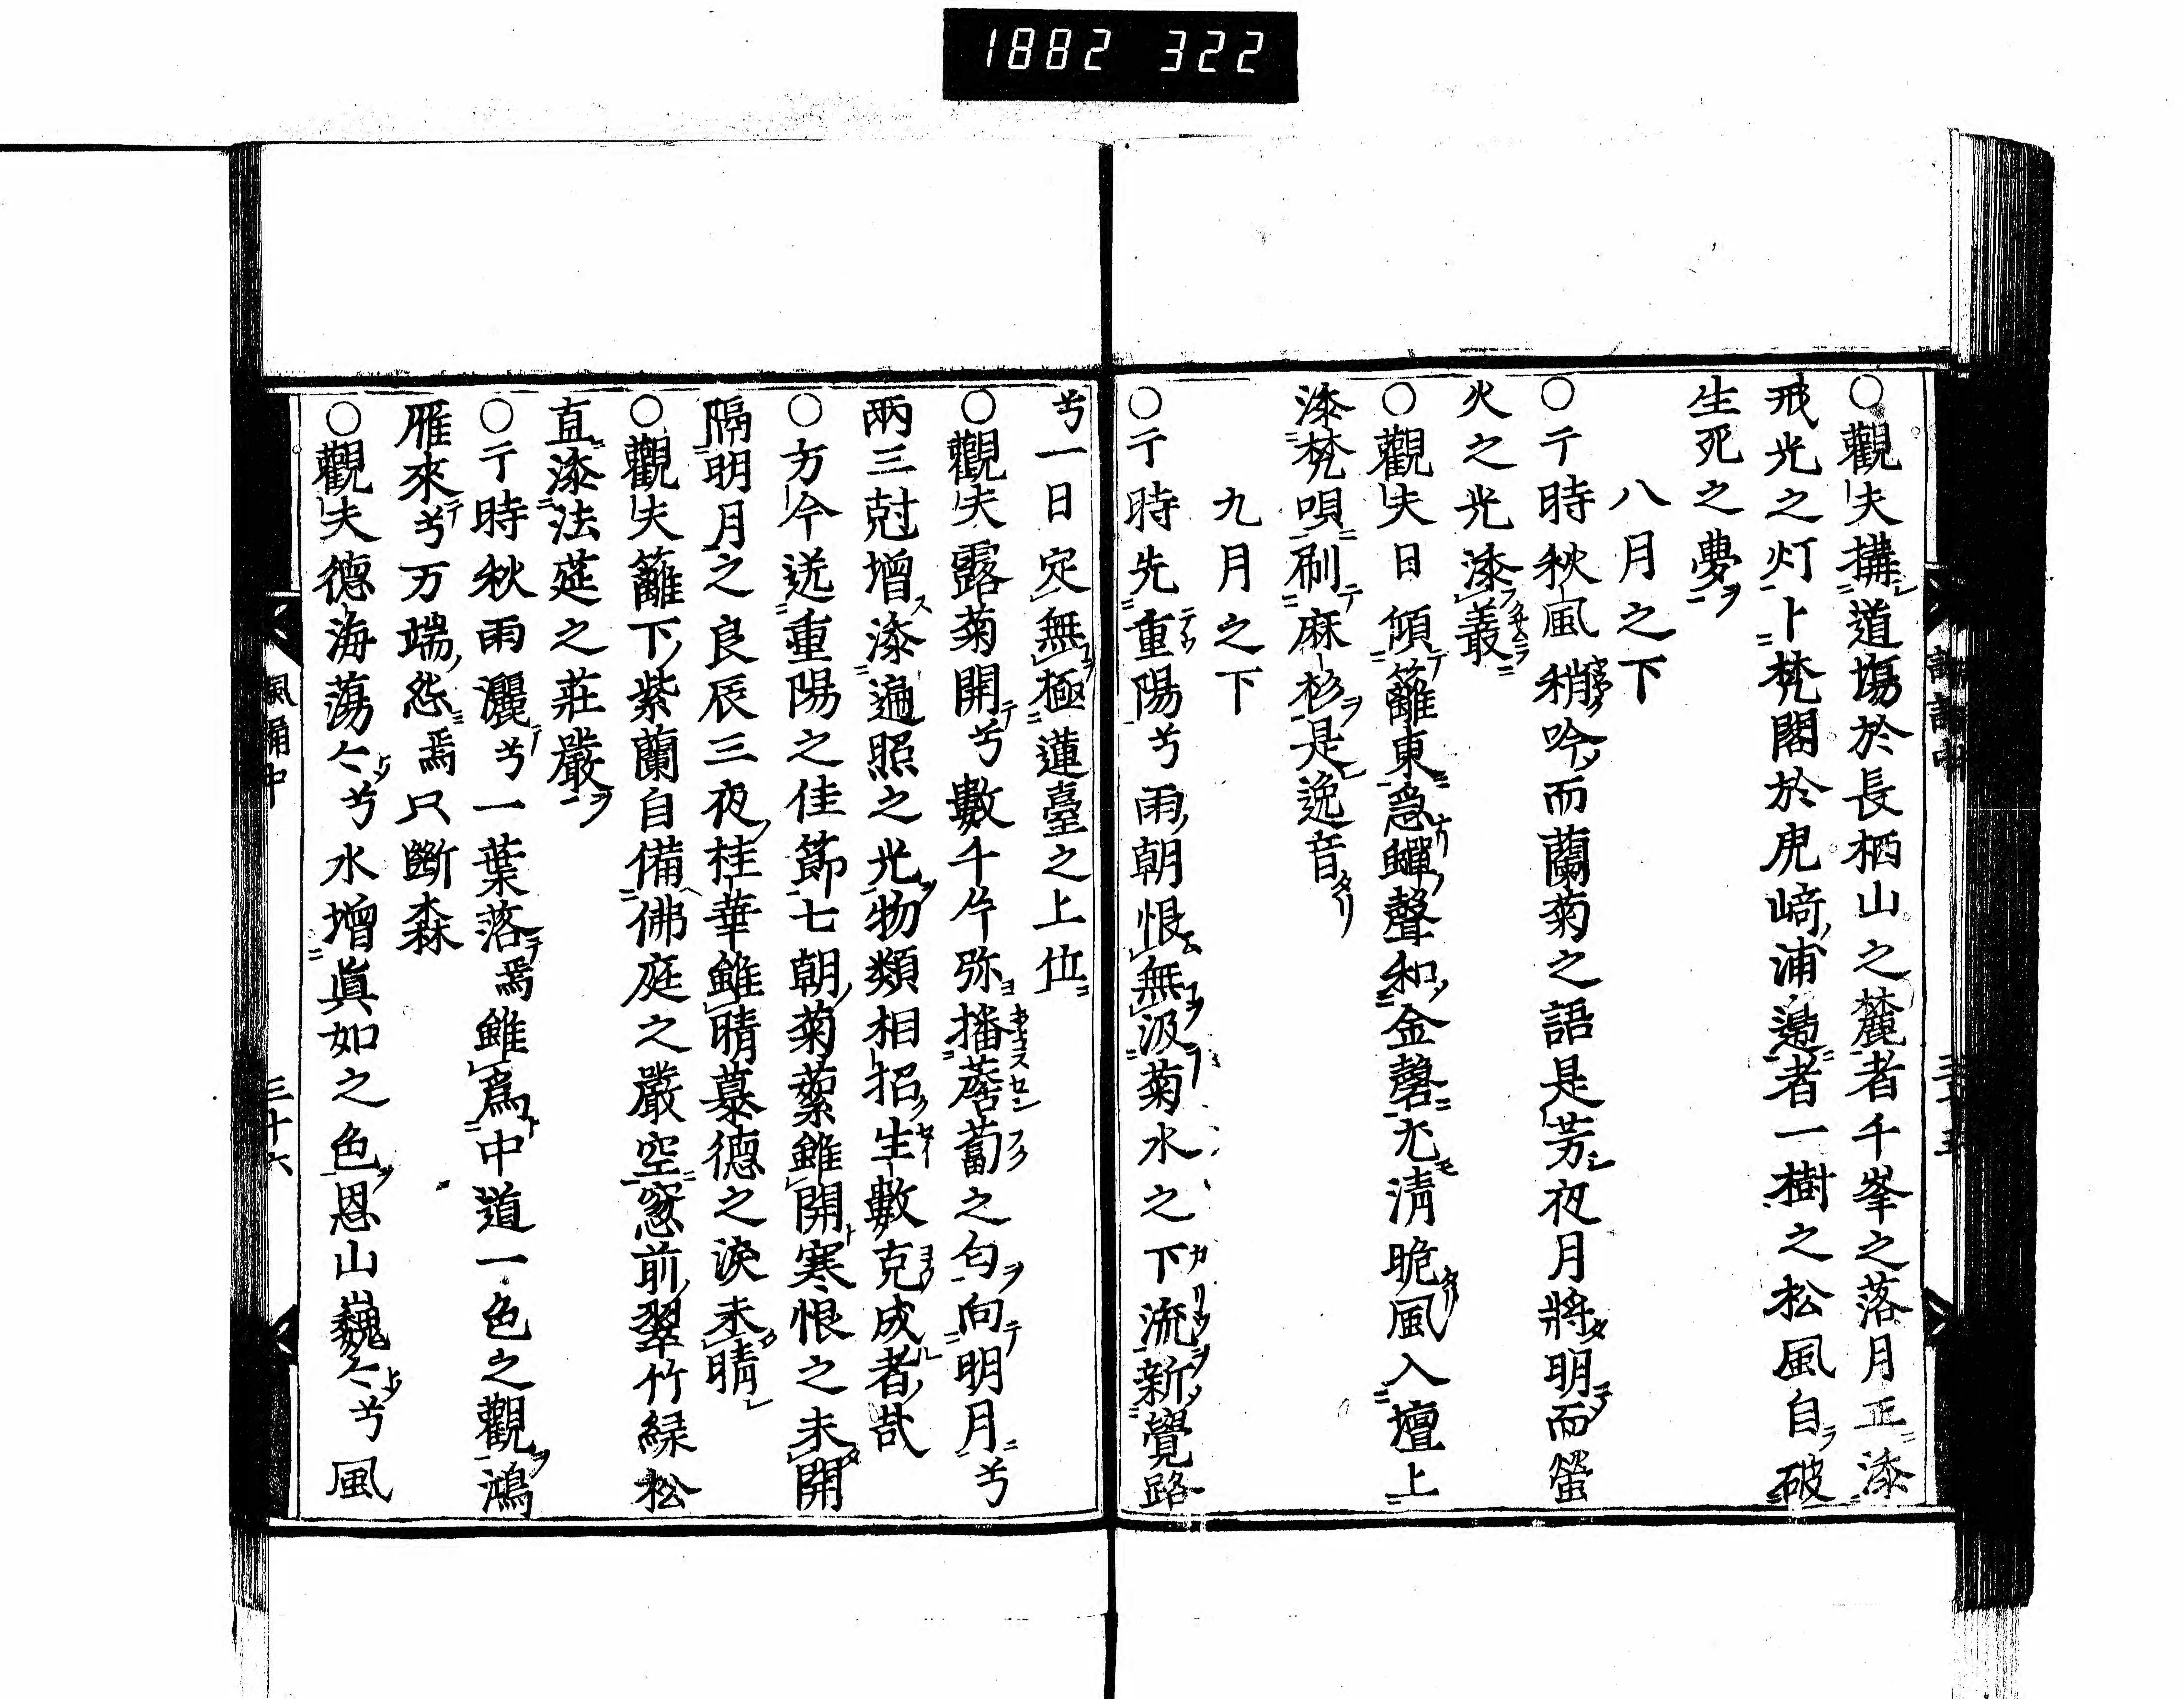 1882 322
○觀夫搆道塲於長栖山之麓者千峯之落月正添
戒光之灯卜梵閣於虎﨑浦邊者一樹之松風自破
生死之夢
八月之下
○于時秋風稍吟而蘭菊之語是芳夜月將明而螢
火之光添叢
○觀夫日傾籬東急蟬聲和金磬尤清晚風入壇上
添梵唄刷麻衫是逸音
九月之下
○于時先重陽兮雨朝恨無汲菊水之下流新覺路
兮一日定無極蓮臺之上位
○觀夫露菊開兮數千片弥播蘑蔔之匂向明月兮
兩三尅增添遍照之光物類相招生數克成者哉
○方今送重陽之佳節七朝菊蘂雖開寒恨之未開
隔明月之良辰三夜桂華雖晴慕德之淚未晴
○觀夫籬下紫蘭自備佛庭之嚴空窓前翠竹緑松
直添法莚之莊嚴
○于時秋雨灑兮一葉落焉雖爲中道一色之觀鴻
雁來兮万端怨焉只斷森
○觀夫德海蕩々兮水增眞如之色恩山巍々兮風
諷誦中 三十六